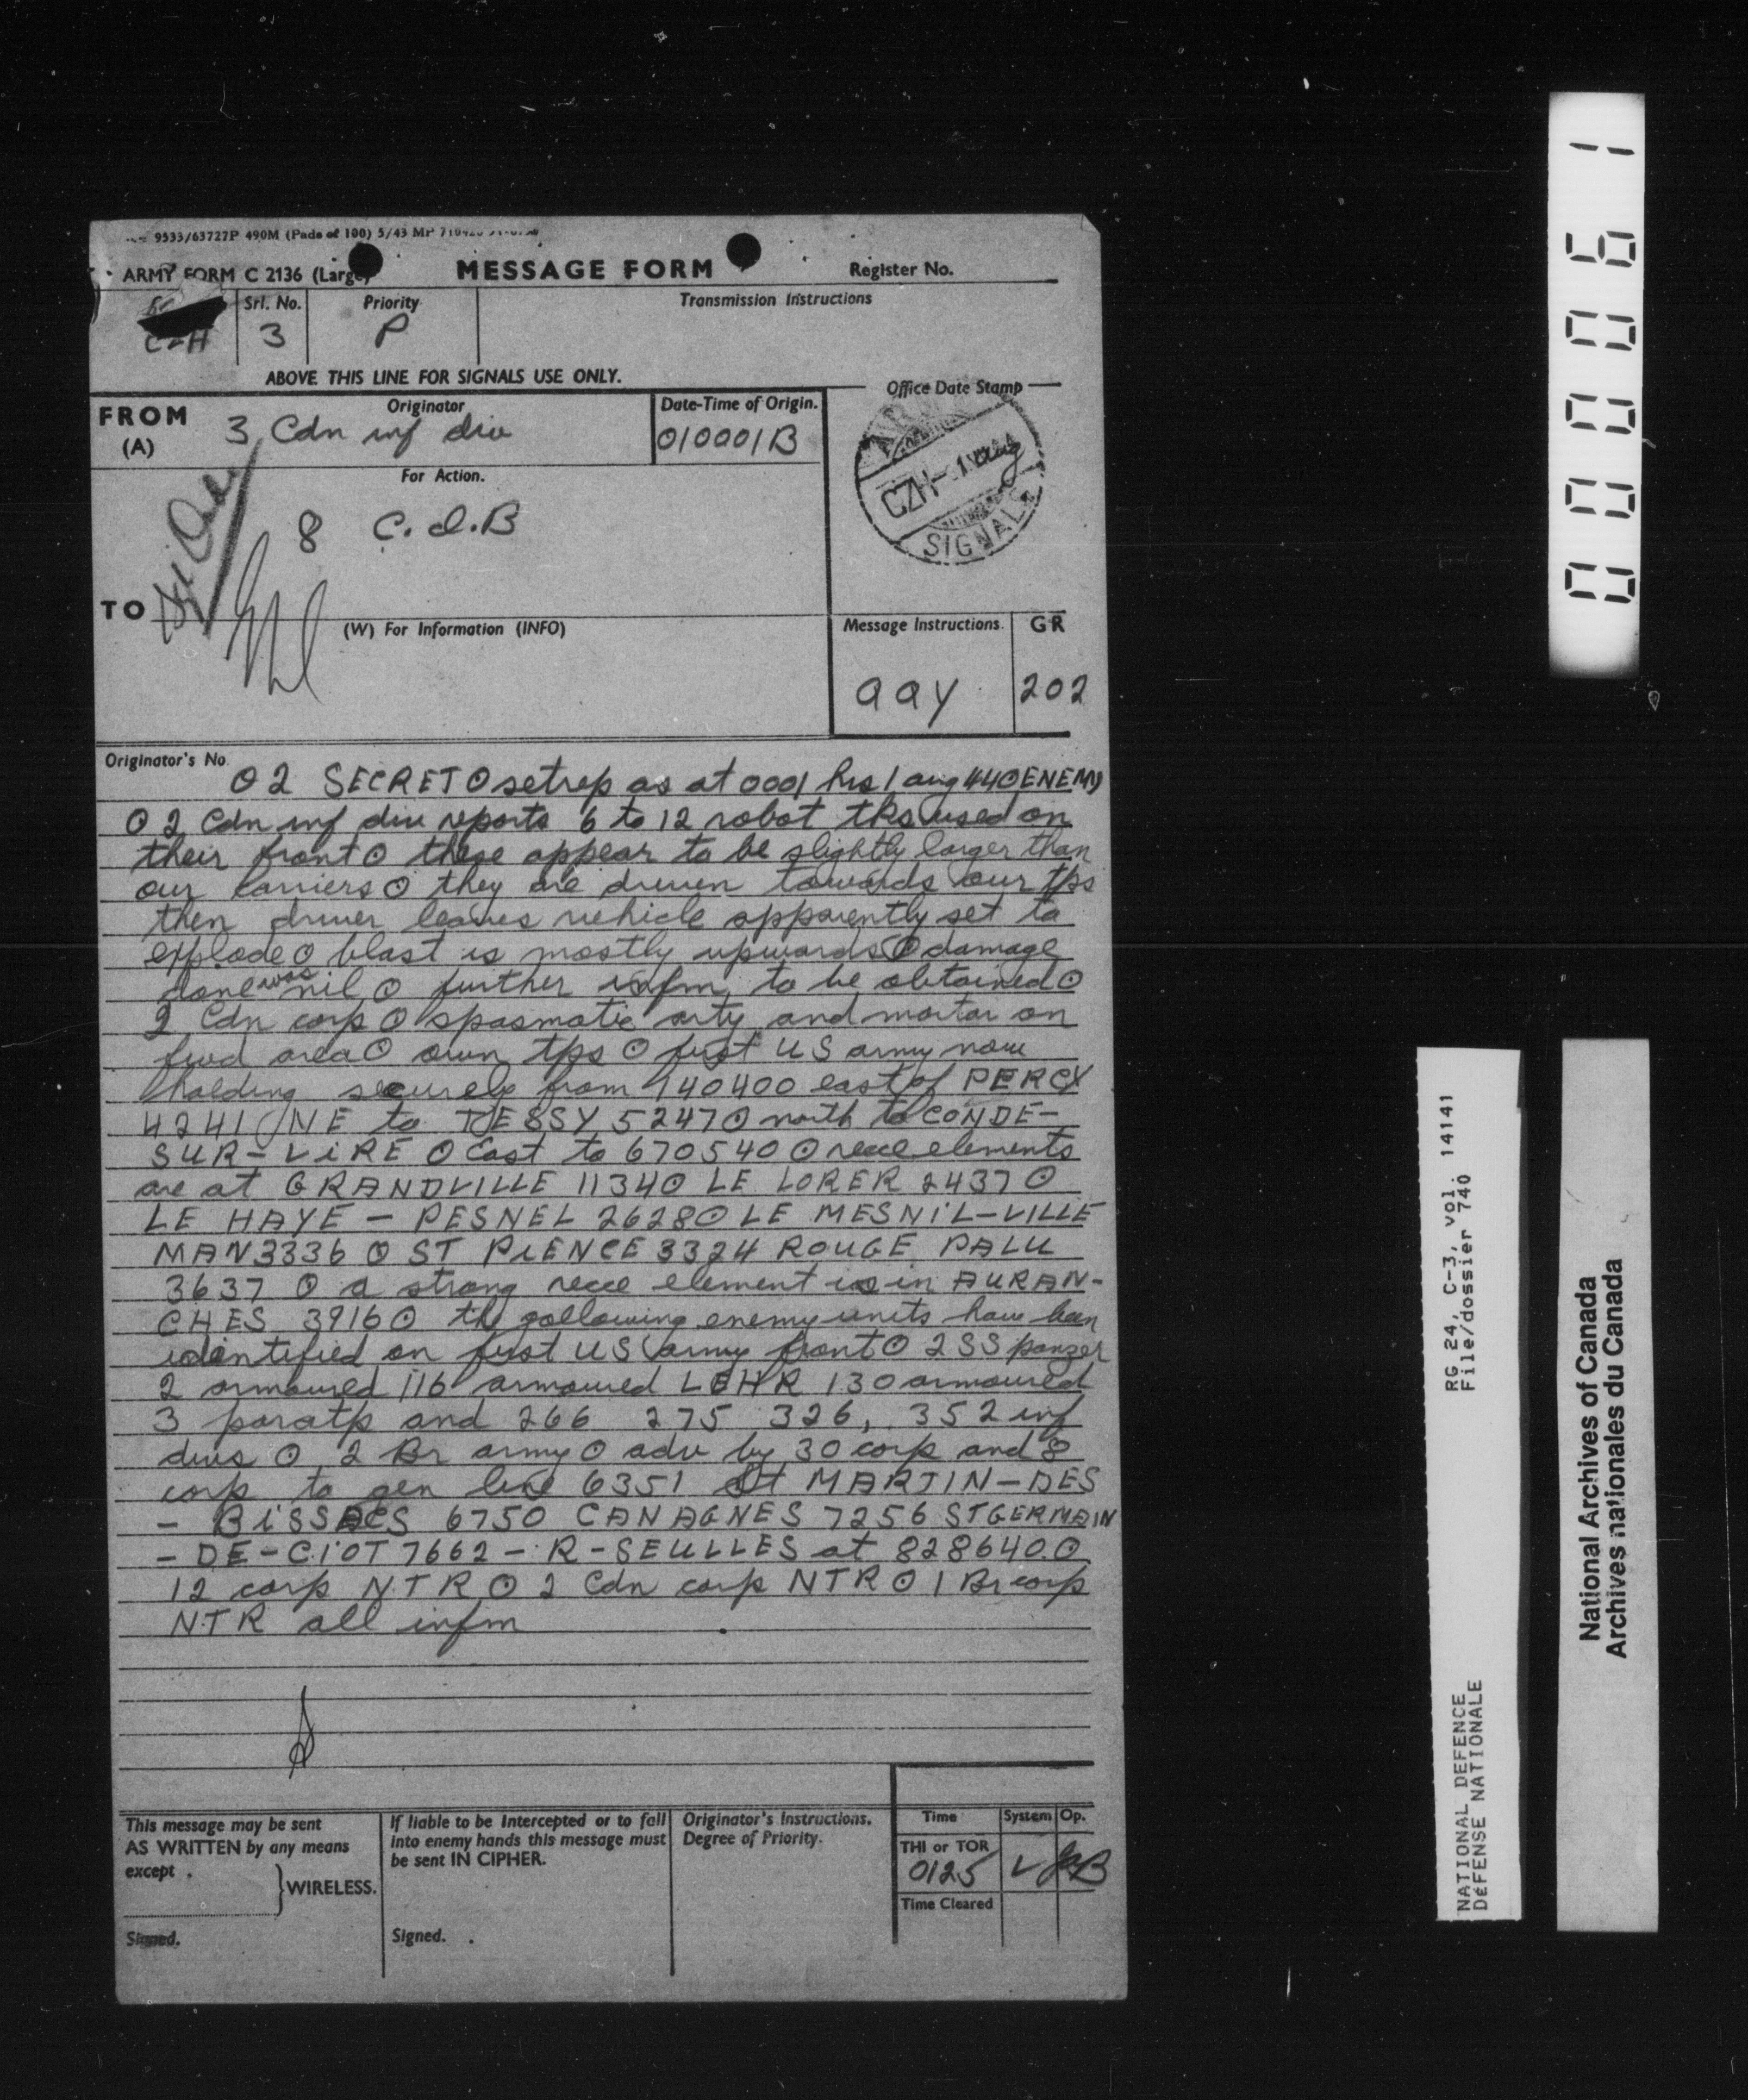 9533/63727P 490M (Pads of 100) 5/43 MP
ARMY FORM C 2136 (Large)
MESSAGE FORM
Register No.
Srl. No.
Priority
Transmission Instructions
CZH
3
P
ABOVE THIS LINE FOR SIGNALS USE ONLY.
FROM
(A)
Originator
3 Cdn inf div
Date-Time of Origin.
010001B
Office Date Stamp
CZH - 1 Aug
SIGNALS
For Action.
8 C.I.B
TO
(W) For Information (INFO)
Message Instructions.
GR
aay
202
Originator's No.
O 2 SECRET O setrep as at 0001 hrs 1 aug 44 O ENEMY
O 2 Cdn inf div reports 6 to 12 robot tks used on
their front O these appear to be slightly larger than
our carriers O they are driven towards our tps
then driver leaves vehicle apparently set to
explode O blast is mostly upwards O damage
done was nil O further infm to be obtained O
2 Cdn corp O spasmatic arty and mortar on
fwd area O own tps O first US army now
holding securely from 140400 east of PERCY
4241 NE to TESSY 5247 O north to CONDE-
SUR-LIRE O East to 670540 O recce elements
are at GRANDVILLE 1134 O LE LORER 2437 O
LE HAYE - PESNEL 2628 O LE MESNIL-VILLE
MAN 3336 O ST PIENCE 3324 ROUGE PALU
3637 O a strong recce element is in AURAN-
CHES 3916 O the following enemy units have been
identified on first US army front O 2 SS panzer
2 armoured 116 armoured LEHR 130 armoured
3 paratp and 266 275 326, 352 inf
divs O 2 Br army O adv by 30 corp and 8
corp to gen line 6351 St MARTIN-DES
- BISSACS 6750 CANAGNES 7256 ST GERMAIN
- DE-CIOT 7662 - R-SEULLES at 828640.O
12 corp NTR O 2 Cdn corp NTR O 1 Br corp
NTR all infm
This message may be sent
AS WRITTEN by any means
except .
WIRELESS.
Signed.
If liable to be intercepted or to fall
into enemy hands this message must
be sent IN CIPHER.
Signed.
Originator's Instructions.
Degree of Priority.
Time
System
Op.
THI or TOR
0125
Time Cleared
000061
RG 24, C-3, vol. 14141
File/dossier 740
NATIONAL DEFENCE
DÉFENSE NATIONALE
National Archives of Canada
Archives nationales du Canada